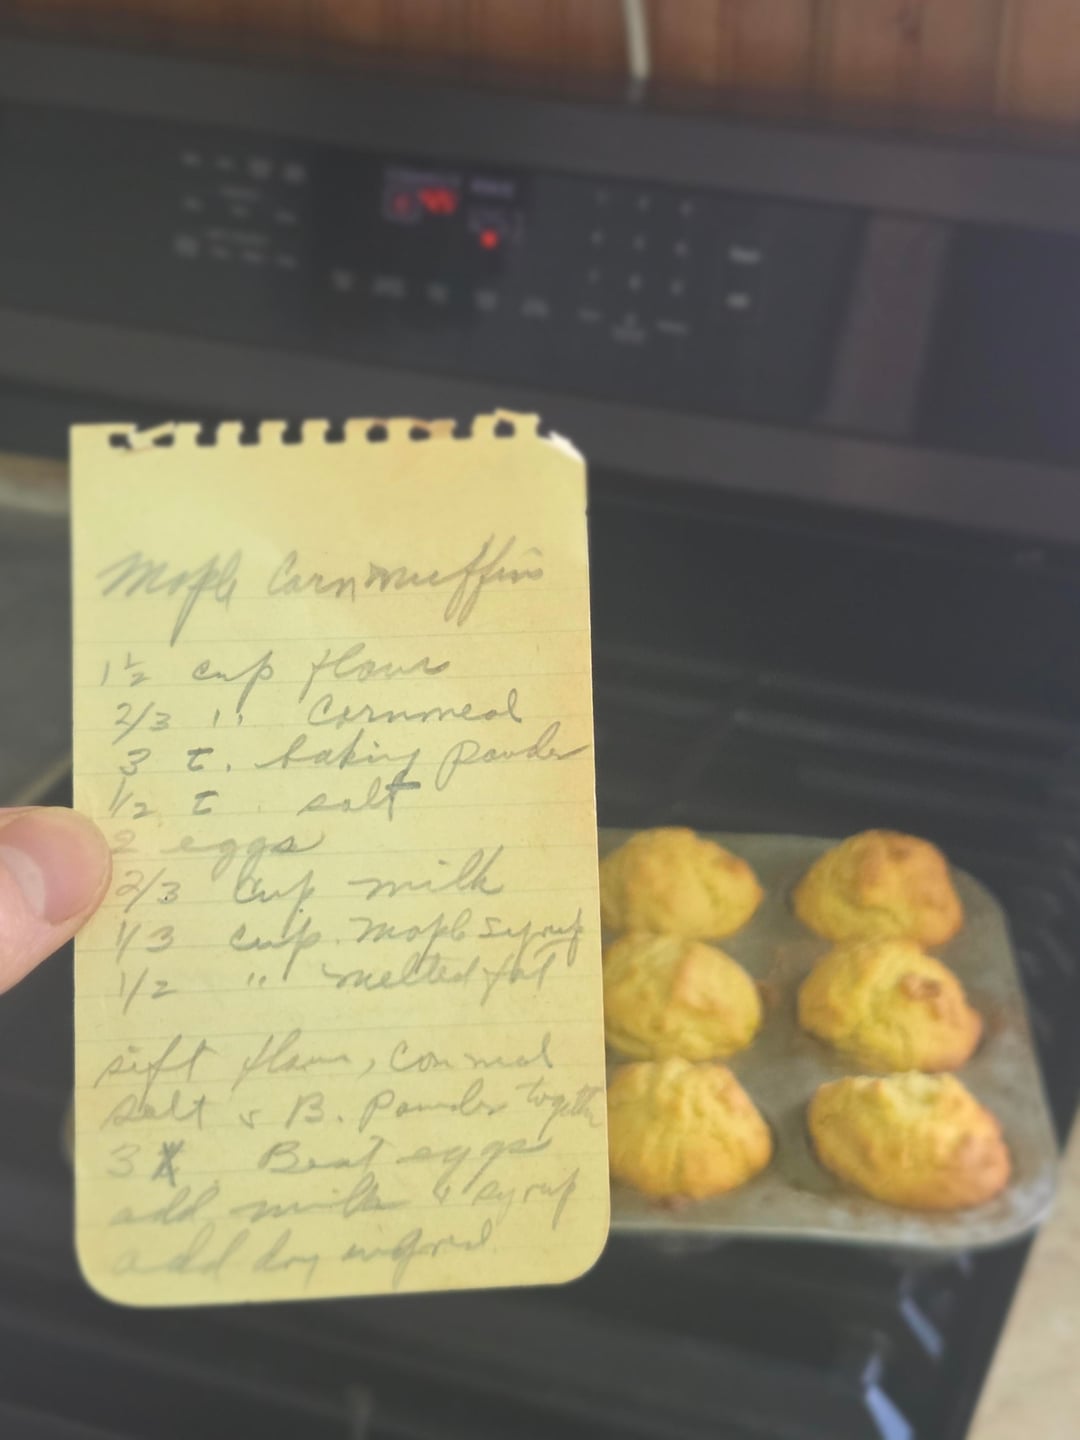 Maple Corn muffins
1 1/2 cup flour
2/3 " Cornmeal
3 t. baking powder
1/2 t. salt
2 eggs
2/3 cup milk
1/3 cup. Maple Syrup
1/2 " melted fat
sift flour, Cornmeal
salt & B. Powder together
3 X Beat eggs
add milk & syrup
add dry ingred.